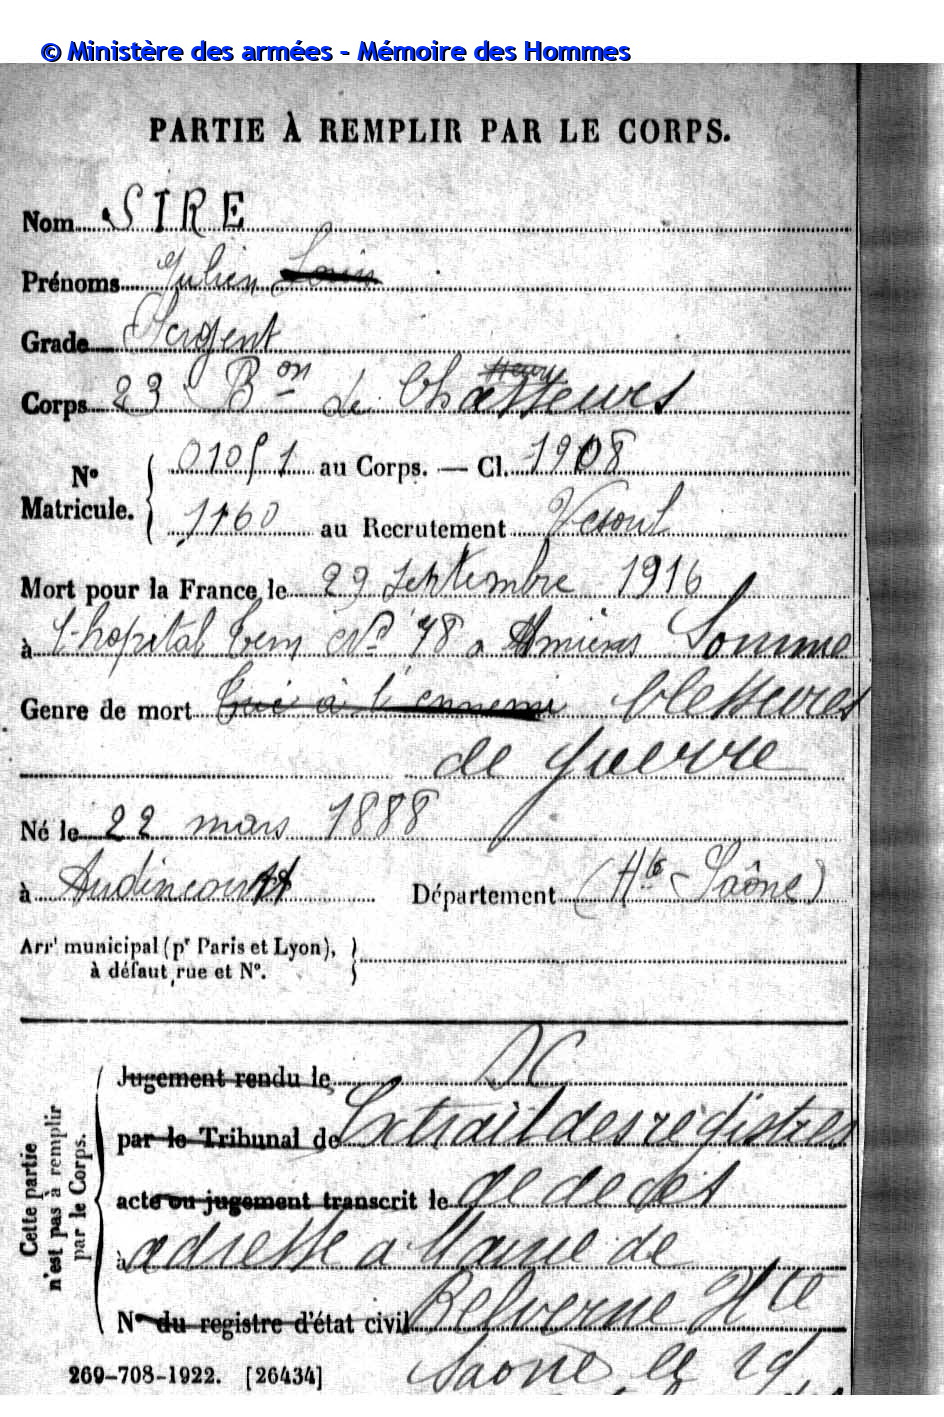 © Ministère des armées - Mémoire des Hommes
PARTIE À REMPLIR PAR LE CORPS.
Nom SIRE
Prénoms Julien Louis
Grade Sergent
Corps 23 Bon de Chasseurs
Nº Matricule. 01051 au Corps. — Cl. 1908
1160 au Recrutement Vesoul
Mort pour la France le 29 septembre 1916
à l'hopital tem Nº 78 a Amiens Somme
Genre de mort Tué à l'ennemi blessures
de guerre
Né le 22 mars 1888
à Audincourt Département (Hte Saône)
Arrt municipal (pr Paris et Lyon),
à défaut rue et Nº.
Cette partie
n'est pas à remplir
par le Corps.
Jugement rendu le DC
par le Tribunal de Extrait des registres
acte ou jugement transcrit le de deces
à adresse a Maire de
Nº du registre d'état civil Belverne Hte
Saone le 19
260-708-1922. [26434]